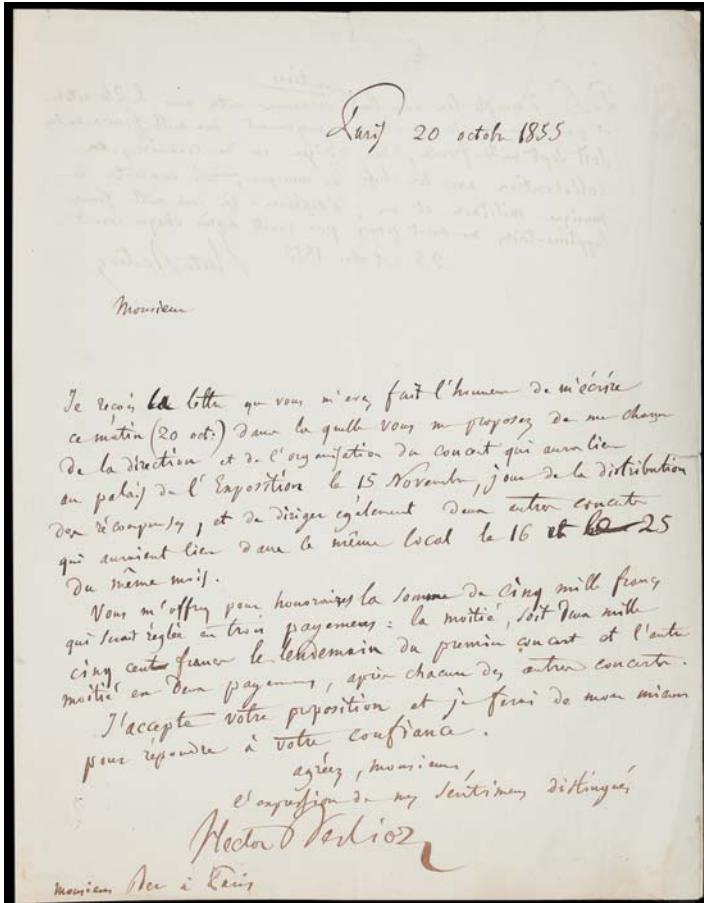 Paris 20 octobre 1855
Monsieur
Je reçois la lettre que vous m'avez fait l'honneur de m'écrire
ce matin (20 oct:) dans la quelle vous me proposez de me charger
de la direction et de l'organisation du concert qui aura lieu
au palais de l'Exposition le 15 Novembre, jour de la distribution
des récompenses, et de diriger également deux autres concerts
qui auraient lieu dans le même local le 16 et le 25
du même mois.
Vous m'offrez pour honoraires la somme de cinq mille francs
qui serait réglée en trois payemens : la moitié, soit deux mille
cinq cents francs le lendemain du premier concert et l'autre
moitié en deux payemens, après chacun des autres concerts.
J'accepte votre proposition et je ferai de mon mieux
pour répondre à votre confiance.
agréez, monsieur,
l'expression de mes sentimens distingués
Hector Berlioz
monsieur Ber à Paris